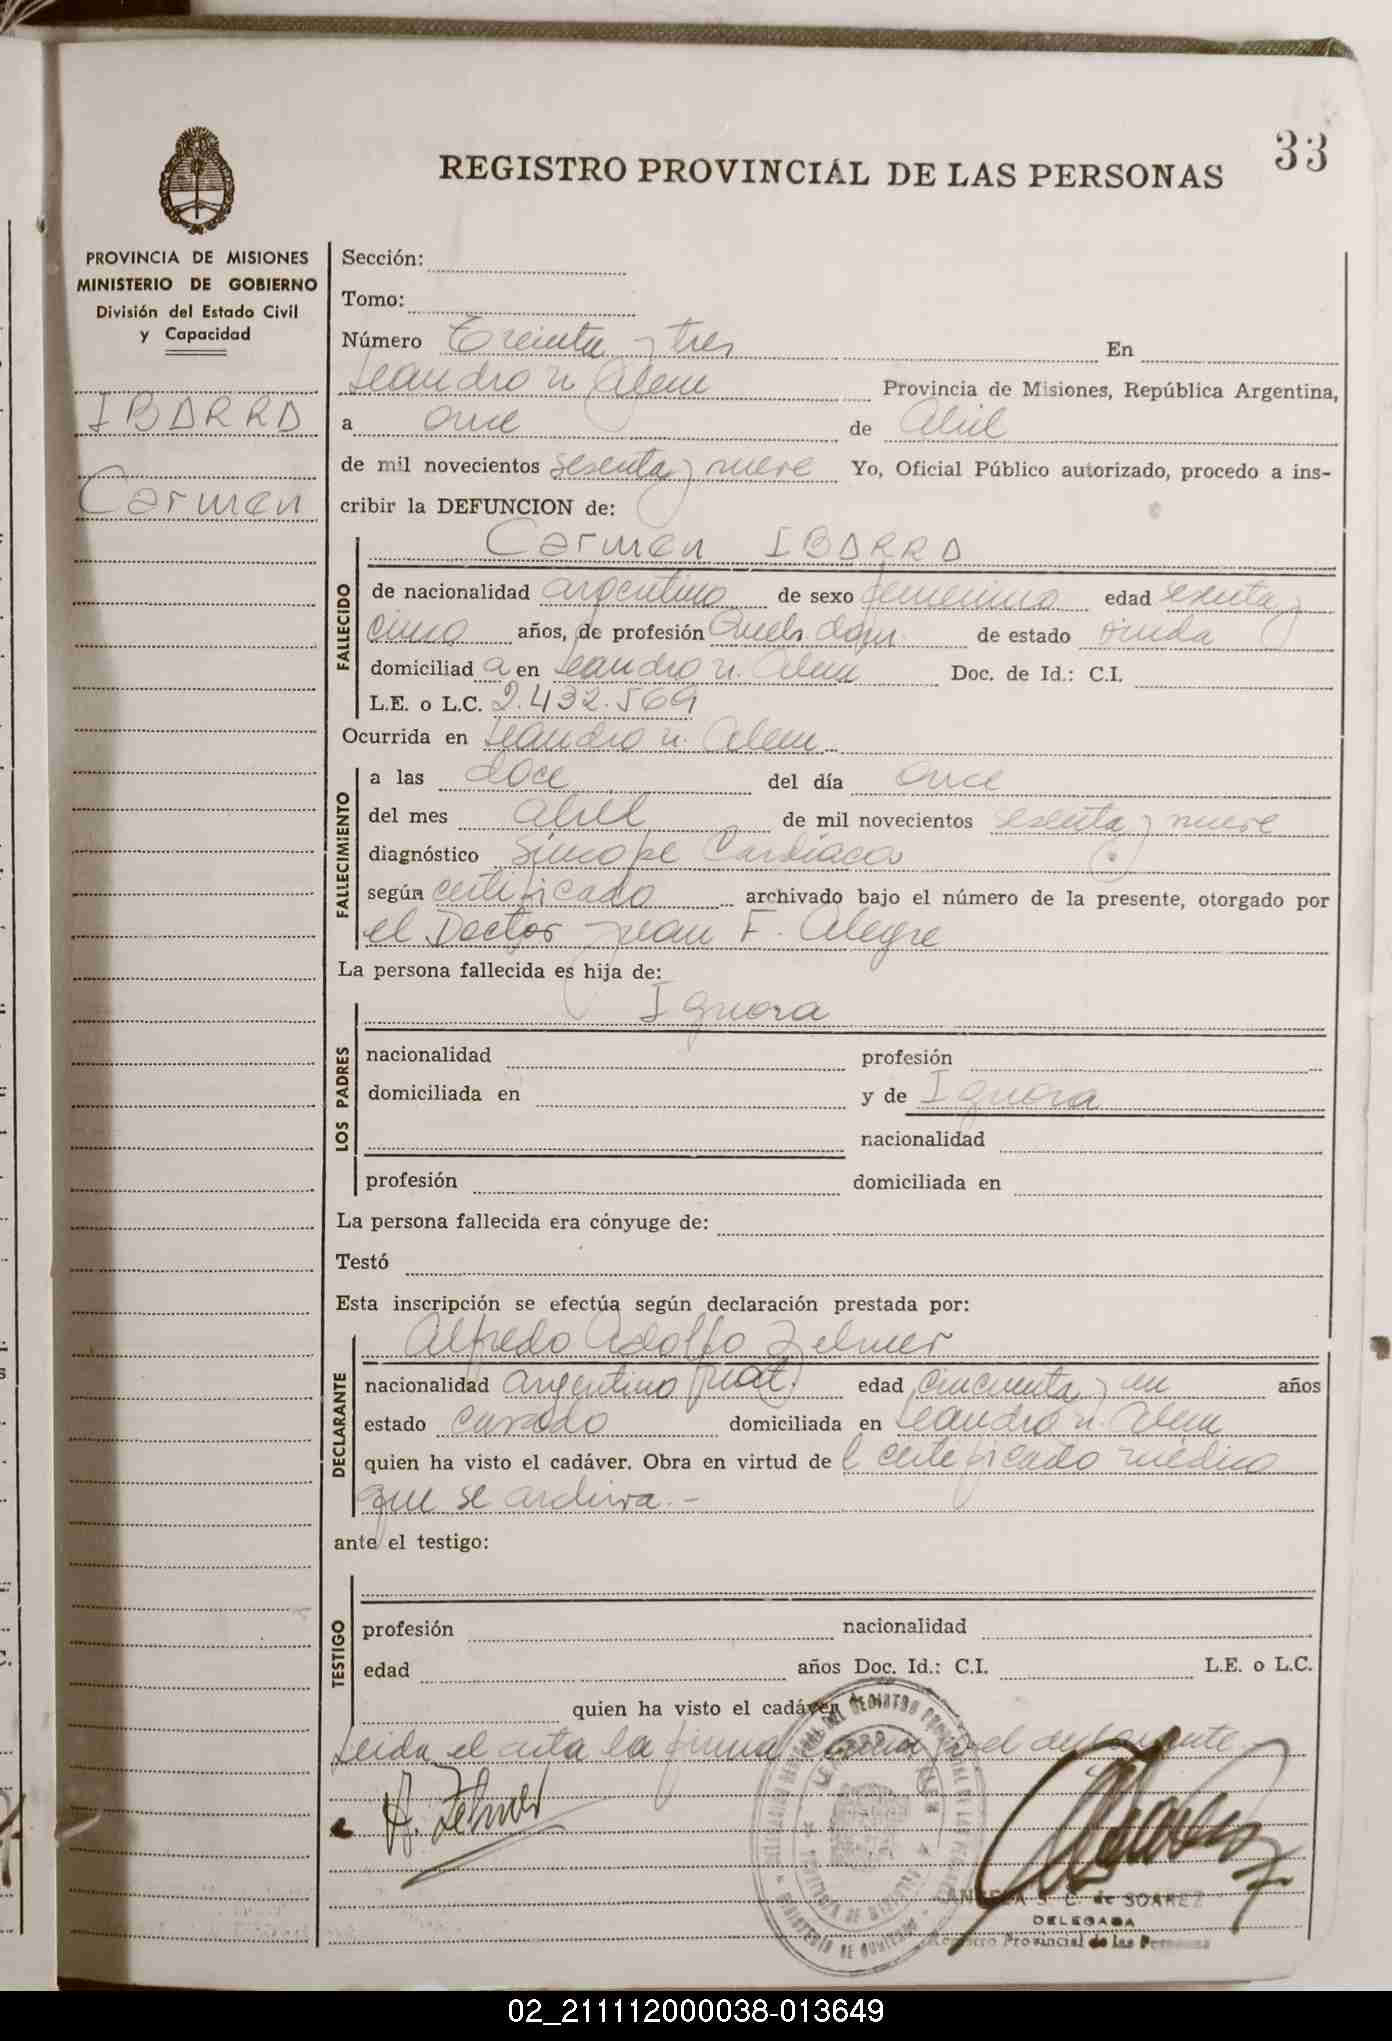 33
REGISTRO PROVINCIAL DE LAS PERSONAS
PROVINCIA DE MISIONES
MINISTERIO DE GOBIERNO
División del Estado Civil
y Capacidad
IBARRA
Carmen
Sección:
Tomo:
Número Treinta y tres En
Leandro N. Alem Provincia de Misiones, República Argentina,
a once de Abril
de mil novecientos sesenta y nueve Yo, Oficial Público autorizado, procedo a ins-
cribir la DEFUNCION de:
Carmen IBARRA
FALLECIDO
de nacionalidad argentino de sexo femenino edad sesenta y
cinco años, de profesión Queh. dom. de estado viuda
domiciliad a en Leandro N. Alem Doc. de Id.: C.I.
L.E. o L.C. 2.432.569
Ocurrida en Leandro N. Alem
FALLECIMIENTO
a las doce del día once
del mes abril de mil novecientos sesenta y nueve
diagnóstico Síncope Cardíaco
según certificado archivado bajo el número de la presente, otorgado por
el Doctor Juan F. Alegre
La persona fallecida es hija de:
Ignora
LOS PADRES
nacionalidad profesión
domiciliada en y de Ignora
nacionalidad
profesión domiciliada en
La persona fallecida era cónyuge de:
Testó
Esta inscripción se efectúa según declaración prestada por:
Alfredo Adolfo Zelmer
DECLARANTE
nacionalidad argentino (nat.) edad cincuenta y un años
estado casado domiciliada en Leandro N. Alem
quien ha visto el cadáver. Obra en virtud de l certificado médico
que se archiva.-
ante el testigo:
TESTIGO
profesión nacionalidad
edad años Doc. Id.: C.I. L.E. o L.C.
quien ha visto el cadáver
Leida el acta la firma el declarante
A. Zelmer
de SOAREZ
DELEGADA
Registro Provincial de las Personas
02_211112000038-013649